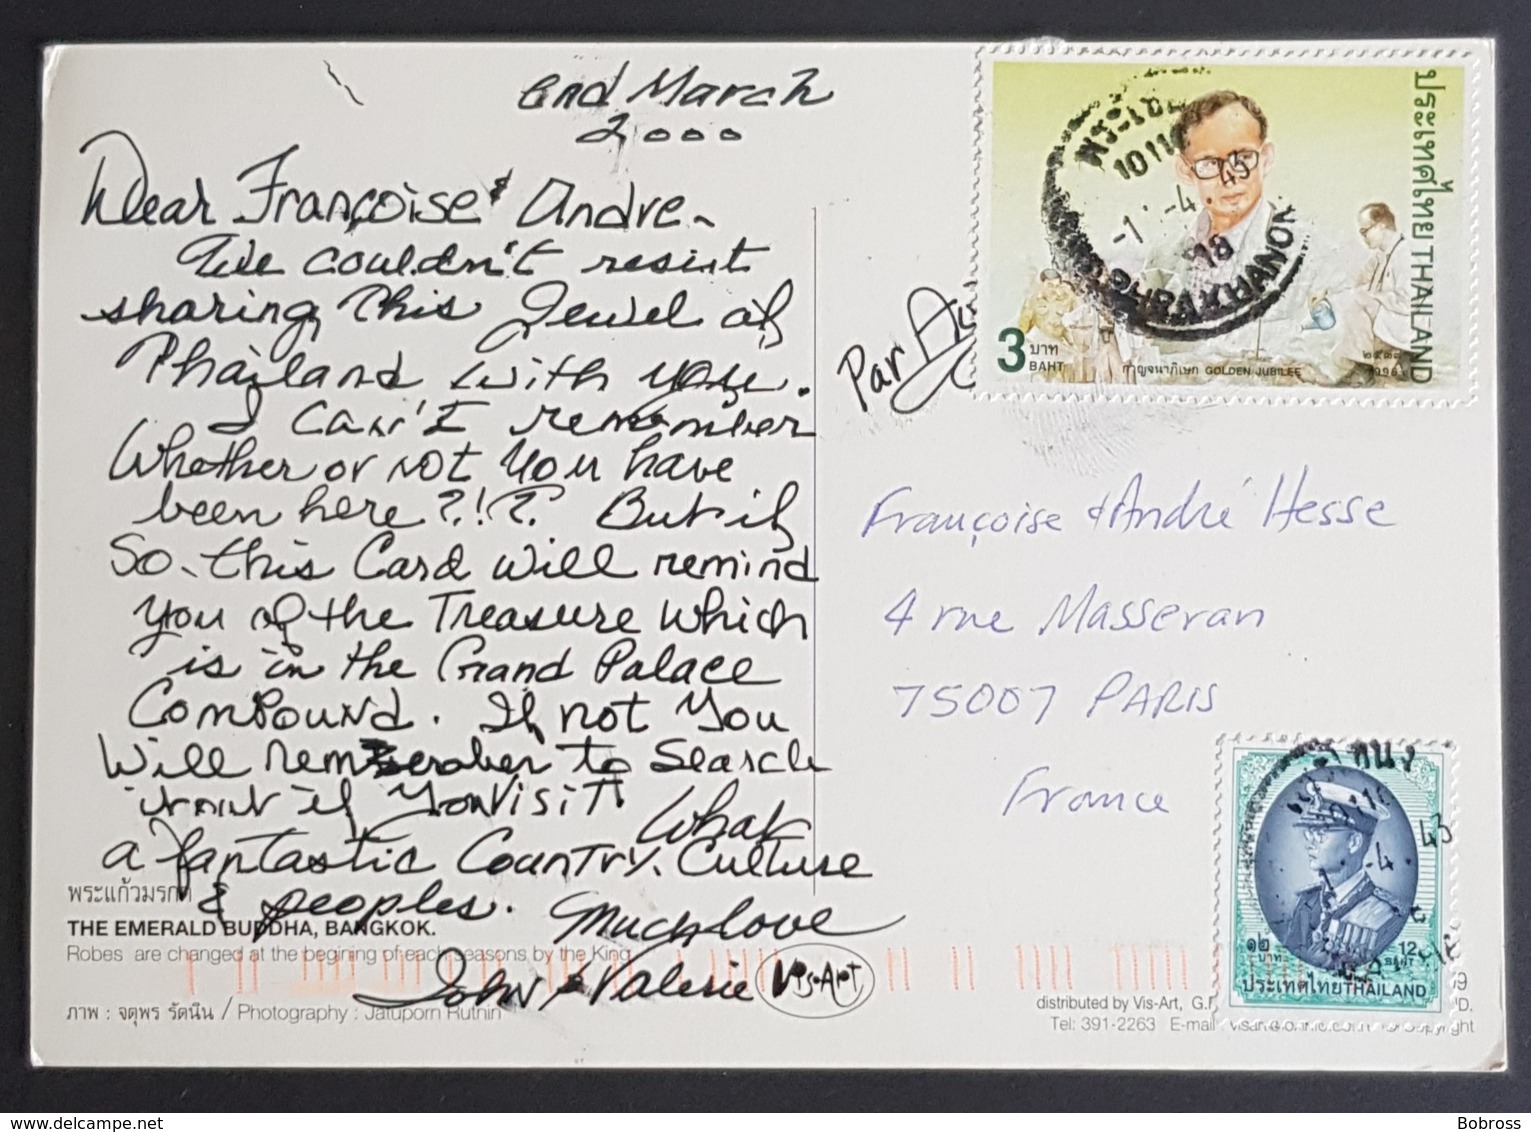 end March
2000
Dear Françoise & Andre -
We couldn't resist
sharing this Jewel of
Thailand with you.
I can't remember
Whether or not you have
been here?!?. But if
So - this Card will remind
you of the Treasure which
is in the Grand Palace
Compound. If not you
Will remember to Search
it out if You Visit!
What
a fantastic Country, Culture
& peoples. Much love
John & Valerie
พระแก้วมรกต
THE EMERALD BUDDHA, BANGKOK.
Robes are changed at the begining of each seasons by the King
ภาพ : จตุพร รัตนีน / Photography : Jatuporn Rutnin
Vis-Art
Par
Françoise & André Hesse
4 rue Masseran
75007 PARIS
France
ประเทศไทย THAILAND
3 บาท
BAHT
กาญจนาภิเษก GOLDEN JUBILEE
๒๕๓๙
1996
10110
-1.-4. 43
18
PHRAKHANONG
๑๒
บาท
12
BAHT
ประเทศไทย THAILAND
distributed by Vis-Art,
Tel: 391-2263 E-mail
Bobross